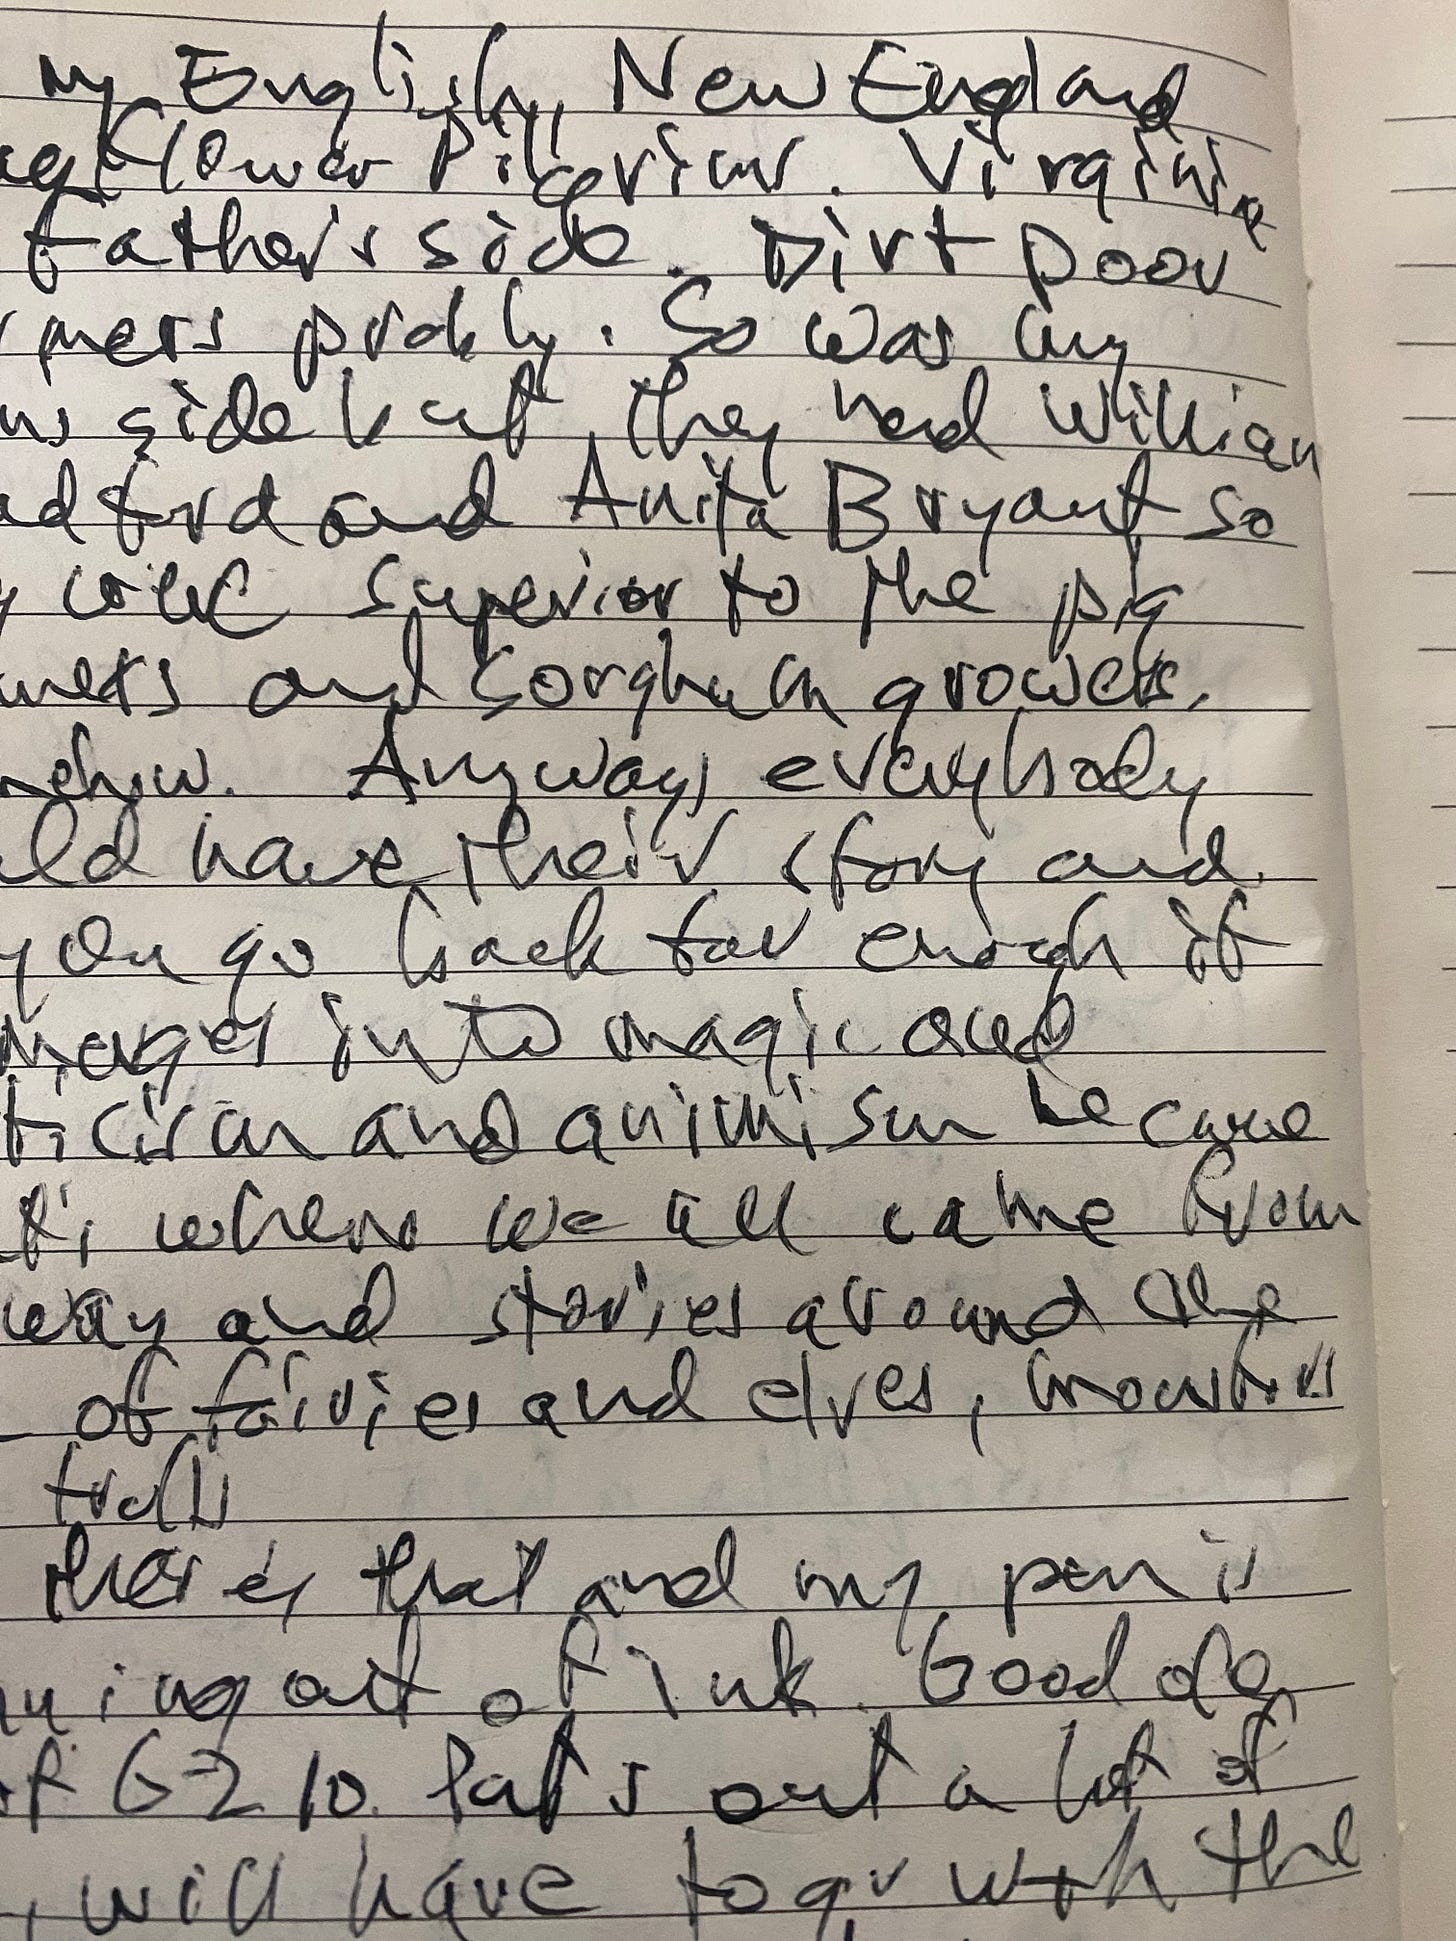 my English, New England
flower Pilgrims. Virginia
father's side. Dirt poor
mers probly. So was my
ms side but they had William
adford and Anita Bryant so
y were superior to the pig
and sorghum growers.
mehow. Anyway, everybody
uld have their story and
you go back far enough it
merges into magic and
ticism and animism because
where we all came from
way and stories around the
of fairies and elves, monsters
trolls
there's that and my pen is
nning out of ink. Good ole
G-2 10. Puts out a lot of
will have to go with the